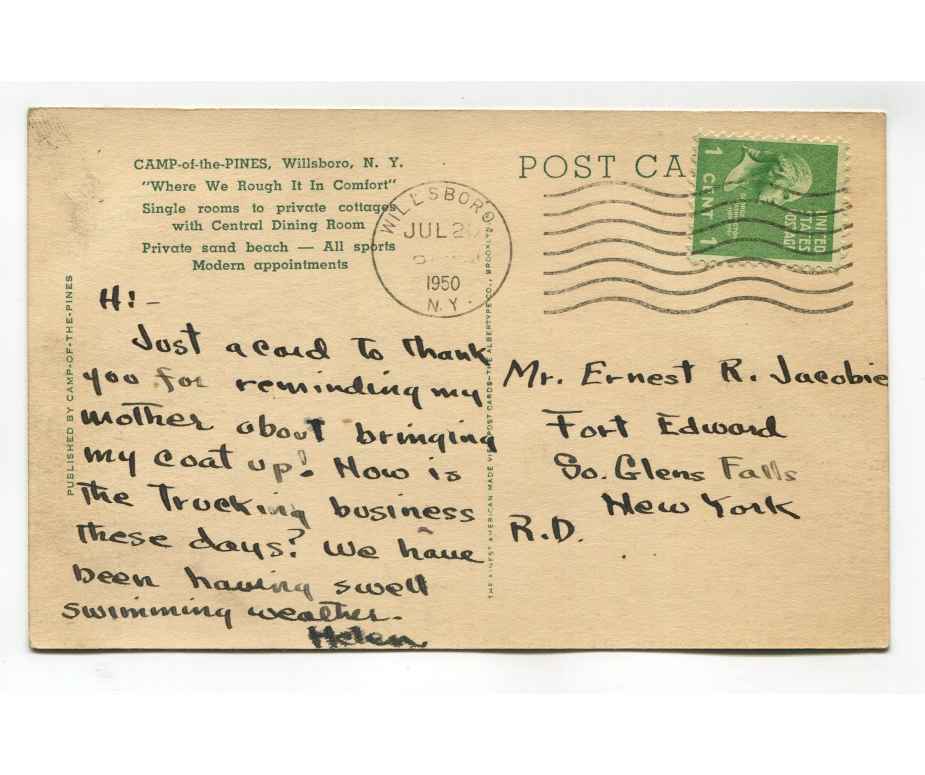 CAMP-of-the-PINES, Willsboro, N. Y.
"Where We Rough It In Comfort"
Single rooms to private cottages
with Central Dining Room
Private sand beach — All sports
Modern appointments
POST CA
1 CENT 1
UNITED
STATES
OF
WILLSBORO
JUL 2
1950
N.Y.
PUBLISHED BY CAMP-OF-THE-PINES
THE FINEST AMERICAN MADE VIEW POST CARDS—THE ALBERTYPE CO., BROOKLYN
Hi—
Just a card to thank
you for reminding my
mother about bringing
my coat up! How is
the trucking business
these days? We have
been having swell
swimming weather.
Helen
Mr. Ernest R. Jacobie
Fort Edward
So. Glens Falls
New York
R.D.